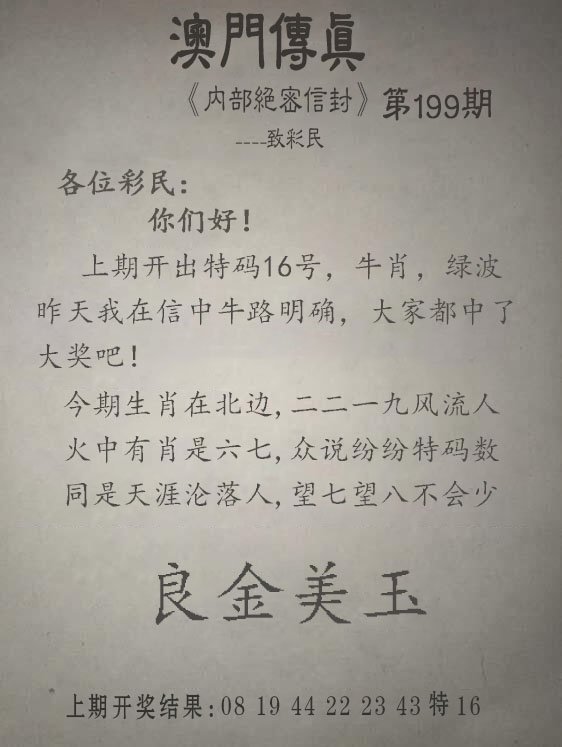 澳門傳真
《内部絕密信封》第199期
----致彩民
各位彩民：
你们好！
上期开出特码16号，牛肖，绿波
昨天我在信中牛路明确，大家都中了
大奖吧！
今期生肖在北边,二二一九风流人
火中有肖是六七,众说纷纷特码数
同是天涯沦落人,望七望八不会少
良金美玉
上期开奖结果:08 19 44 22 23 43 特 16